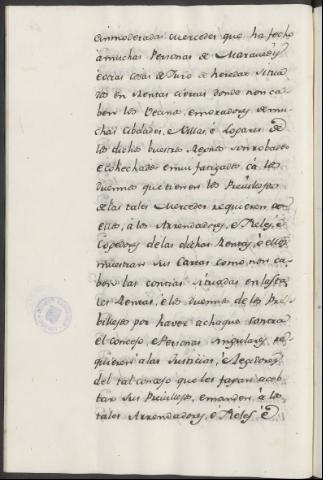 inmoderadas mercedes que ha fecho
a muchas Personas de Maravedis
é otras cosas de Juro de heredar situa
das en Rentas ciertas donde non ca
ben los Vecinos, e moradores de mu
chas Cibdades, é Villas, é Logares de
los dichos buestros Regnos son robados
é cohechados é muy fatigados ca los
duennos que tienen los Previllejos
de las tales Mercedes requieren con
ellos, á los Arrendadores, é Fieles, é
Cogedores de las dichas Rentas, é ellos
muestran sus Cartas como non ca
ben las contias situadas en las ta
les Rentas, é los duennos de los Pre
billejos por haver achaque contra
el concejo, é Personas singulares, re
quieren á las Justicias, é Regidores
del tal concejo que les fagan aceb
tar sus Previllejos, e manden á los
tales Arrendadores, é Fieles, é